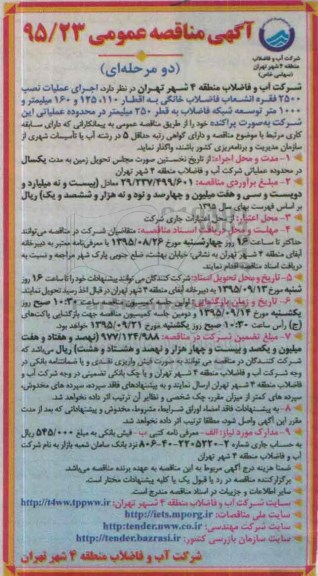 شرکت آب و فاضلاب
منطقه ۴ شهر تهران
(سهامی خاص)
آگهی مناقصه عمومی ۹۵/۲۳
(دو مرحله‌ای)
شرکت آب و فاضلاب منطقه ۴ شهر تهران در نظر دارد، اجرای عملیات نصب
۲۵۰۰ فقره انشعاب فاضلاب خانگی به اقطار ۱۱۰، ۱۲۵ و ۱۶۰ میلیمتر و
۱۰۰۰ متر توسعه شبکه فاضلاب به قطر ۲۵۰ میلیمتر در محدوده عملیاتی این
شرکت به‌صورت پراکنده خود را از طریق مناقصه عمومی به پیمانکارانی که دارای سابقه
کاری مرتبط با موضوع مناقصه و دارای گواهی رتبه حداقل ۵ در رشته آب یا تأسیسات شهری از
سازمان مدیریت و برنامه‌ریزی کشور باشند، واگذار نماید.
۱- مدت و محل اجراء: از تاریخ نخستین صورت مجلس تحویل زمین به مدت یکسال
در محدوده عملیاتی شرکت آب و فاضلاب منطقه ۴ شهر تهران
۲- مبلغ برآوردی مناقصه: ۲۹/۲۳۷/۴۹۹/۶۰۱ معادل (بیست و نه میلیارد و
دویست و سی و هفت میلیون و چهارصد و نود و نه هزار و ششصد و یک) ریال
بر اساس فهرست بهای سال ۱۳۹۵
۳- محل اعتبار: از محل اعتبارات جاری شرکت
۴- مهلت و محل دریافت اسناد مناقصه: متقاضیان شرکت در مناقصه می‌توانند
حداکثر تا ساعت ۱۶ روز چهارشنبه مورخ ۱۳۹۵/۰۸/۲۶ با معرفی‌نامه معتبر به دبیرخانه
آبفای منطقه ۴ شهر تهران به نشانی: خیابان بهشت، ضلع جنوبی پارک شهر مراجعه و نسبت به
دریافت اسناد مناقصه اقدام نمایند.
۵- تاریخ و محل تحویل اسناد: شرکت کنندگان می‌توانند پیشنهادات خود را تا ساعت ۱۶ روز
شنبه مورخ ۱۳۹۵/۰۹/۱۳ به دبیرخانه آبفای منطقه ۴ شهر تهران در قبال اخذ رسید تحویل نمایند.
۶- تاریخ و زمان بازگشایی: اولین جلسه کمیسیون مناقصه ساعت ۱۰:۳۰ صبح روز
یکشنبه مورخ ۱۳۹۵/۰۹/۱۴ و دومین جلسه کمیسیون مناقصه جهت بازگشایی پاکت‌های
(ج) رأس ساعت ۱۰:۳۰ صبح روز یکشنبه مورخ ۱۳۹۵/۰۹/۲۱ خواهد بود.
۷- مبلغ تضمین شرکت در مناقصه: ۹۷۷/۱۲۴/۹۸۸ (نهصد و هفتاد و هفت
میلیون و یکصد و بیست و چهار هزار و نهصد و هشتاد و هشت) ریال می‌باشد که
شرکت کنندگان در مناقصه می توانند به صورت فیش واریزی نقدی و یا ضمانتنامه بانکی در
وجه شرکت آب و فاضلاب منطقه ۴ شهر تهران و یا چک بانکی تضمینی در وجه شرکت آب و
فاضلاب منطقه ۴ شهر تهران ارسال نمایند و به پیشنهادهای فاقد سپرده، سپرده های مخدوش،
سپرده های کمتر از میزان مقرر، چک شخصی و نظایر آن ترتیب اثر داده نخواهد شد.
۸- به پیشنهادات فاقد امضاء اوراق شرایط، مشروط، مخدوش و پیشنهاداتی که بعد از مدت
مقرر این آگهی واصل شود، مطلقا ترتیب اثر داده نخواهد شد.
۹- مدارک مورد نیاز: الف - معرفی نامه کتبی ب - فیش بانکی به مبلغ ۵۴۵/۰۰۰ ریال
به حساب جاری شماره ۲-۵۲۲-۲۲۰-۴۰-۸۰۶ نزد بانک سامان شعبه بازار به نام شرکت
آب و فاضلاب منطقه ۴ شهر تهران
ضمنا هزینه درج آگهی مربوط به این مناقصه به عهده برنده مناقصه می‌باشد.
برگزارکننده مناقصه در رد یا قبول یک یا کلیه پیشنهادات مختار است.
سایر اطلاعات و جزییات در اسناد مناقصه مندرج است.
سایت شرکت آب و فاضلاب منطقه ۴ شهر تهران: http://t4ww.tppww.ir
سایت ملی مناقصات: http://iets.mporg.ir
سایت شرکت مهندسی: http:tender.nww.co.ir
سایت سازمان بازرسی کشور: http://tender.bazrasi.ir
شرکت آب و فاضلاب منطقه ۴ شهر تهران